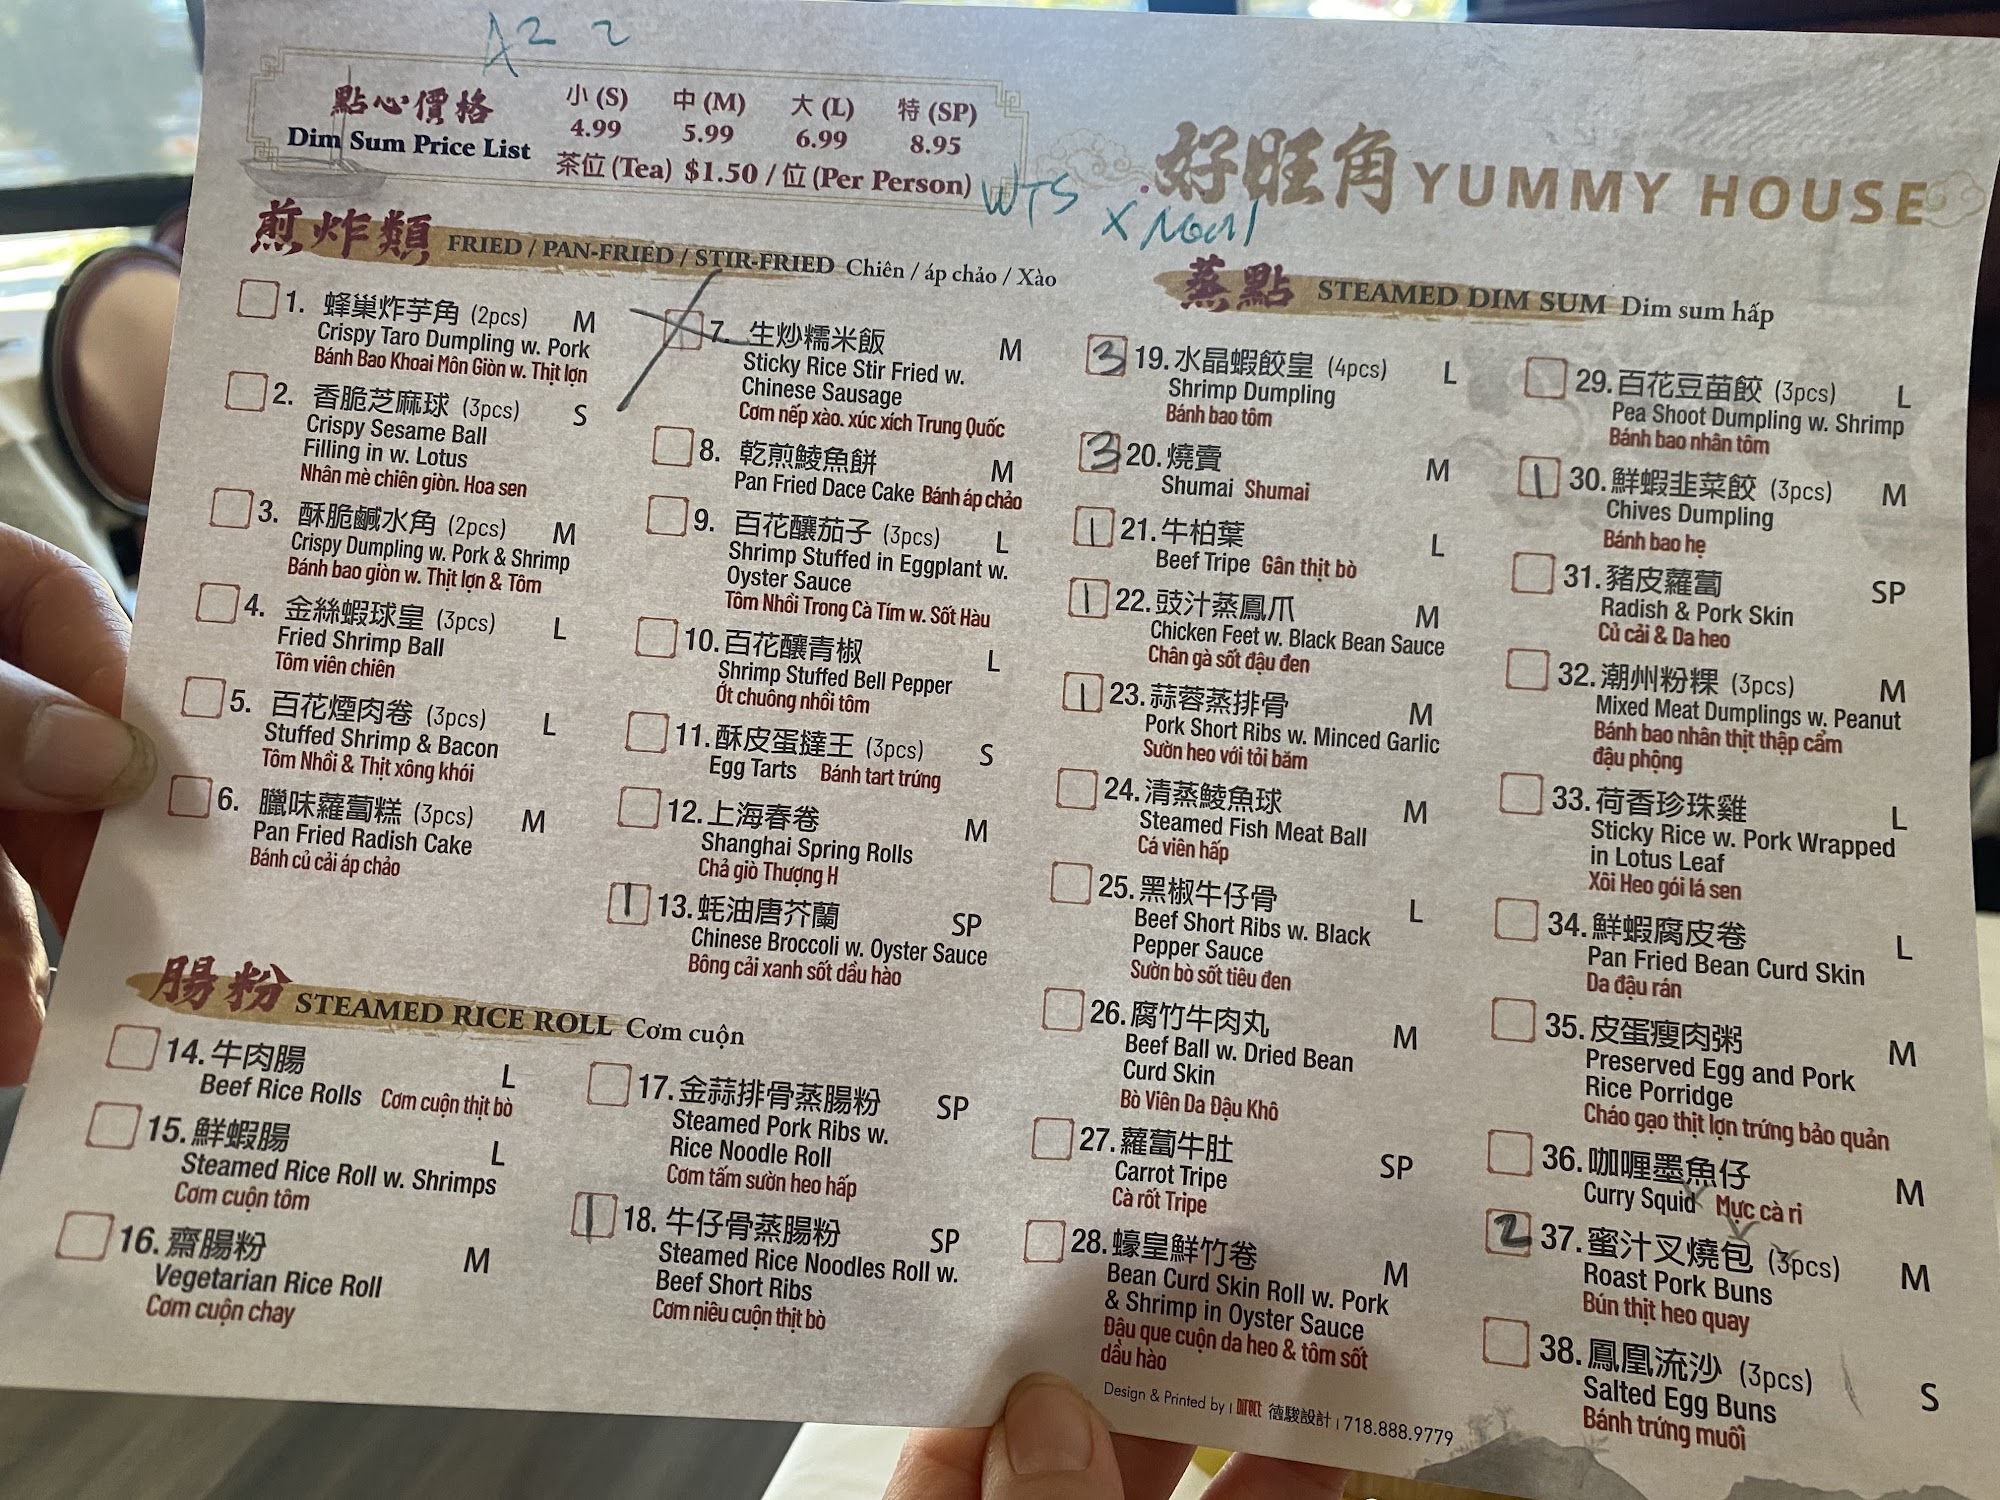 A2 2
點心價格
Dim Sum Price List
小 (S) 中 (M) 大 (L) 特 (SP)
4.99 5.99 6.99 8.95
茶位 (Tea) $1.50 / 位 (Per Person)
WTS
好旺角 YUMMY HOUSE
煎炸類 FRIED / PAN-FRIED / STIR-FRIED Chiên / áp chảo / Xào
1. 蜂巢炸芋角 (2pcs) M
Crispy Taro Dumpling w. Pork
Bánh Bao Khoai Môn Giòn w. Thịt lợn
2. 香脆芝麻球 (3pcs) S
Crispy Sesame Ball
Filling in w. Lotus
Nhân mè chiên giòn. Hoa sen
3. 酥脆鹹水角 (2pcs) M
Crispy Dumpling w. Pork & Shrimp
Bánh bao giòn w. Thịt lợn & Tôm
4. 金絲蝦球皇 (3pcs) L
Fried Shrimp Ball
Tôm viên chiên
5. 百花煙肉卷 (3pcs) L
Stuffed Shrimp & Bacon
Tôm Nhồi & Thịt xông khói
6. 臘味蘿蔔糕 (3pcs) M
Pan Fried Radish Cake
Bánh củ cải áp chảo
7. 生炒糯米飯 M
Sticky Rice Stir Fried w.
Chinese Sausage
Cơm nếp xào. xúc xích Trung Quốc
8. 乾煎鯪魚餅 M
Pan Fried Dace Cake Bánh áp chảo
9. 百花釀茄子 (3pcs) L
Shrimp Stuffed in Eggplant w.
Oyster Sauce
Tôm Nhồi Trong Cà Tím w. Sốt Hàu
10. 百花釀青椒 L
Shrimp Stuffed Bell Pepper
Ớt chuông nhồi tôm
11. 酥皮蛋撻王 (3pcs) S
Egg Tarts Bánh tart trứng
12. 上海春卷 M
Shanghai Spring Rolls
Chả giò Thượng H
1 13. 蚝油唐芥蘭 SP
Chinese Broccoli w. Oyster Sauce
Bông cải xanh sốt dầu hào
腸粉 STEAMED RICE ROLL Cơm cuộn
14. 牛肉腸 L
Beef Rice Rolls Cơm cuộn thịt bò
15. 鮮蝦腸 L
Steamed Rice Roll w. Shrimps
Cơm cuộn tôm
16. 齋腸粉 M
Vegetarian Rice Roll
Cơm cuộn chay
17. 金蒜排骨蒸腸粉 SP
Steamed Pork Ribs w.
Rice Noodle Roll
Cơm tấm sườn heo hấp
1 18. 牛仔骨蒸腸粉 SP
Steamed Rice Noodles Roll w.
Beef Short Ribs
Cơm niêu cuộn thịt bò
蒸點 STEAMED DIM SUM Dim sum hấp
3 19. 水晶蝦餃皇 (4pcs) L
Shrimp Dumpling
Bánh bao tôm
3 20. 燒賣 M
Shumai Shumai
1 21. 牛柏葉 L
Beef Tripe Gân thịt bò
1 22. 豉汁蒸鳳爪 M
Chicken Feet w. Black Bean Sauce
Chân gà sốt đậu đen
1 23. 蒜蓉蒸排骨 M
Pork Short Ribs w. Minced Garlic
Sườn heo với tỏi băm
24. 清蒸鯪魚球 M
Steamed Fish Meat Ball
Cá viên hấp
25. 黑椒牛仔骨 L
Beef Short Ribs w. Black
Pepper Sauce
Sườn bò sốt tiêu đen
26. 腐竹牛肉丸 M
Beef Ball w. Dried Bean
Curd Skin
Bò Viên Da Đậu Khô
27. 蘿蔔牛肚 SP
Carrot Tripe
Cà rốt Tripe
28. 蠔皇鮮竹卷 M
Bean Curd Skin Roll w. Pork
& Shrimp in Oyster Sauce
Đậu que cuộn da heo & tôm sốt
dầu hào
29. 百花豆苗餃 (3pcs) L
Pea Shoot Dumpling w. Shrimp
Bánh bao nhân tôm
1 30. 鮮蝦韭菜餃 (3pcs) M
Chives Dumpling
Bánh bao hẹ
31. 豬皮蘿蔔 SP
Radish & Pork Skin
Củ cải & Da heo
32. 潮州粉粿 (3pcs) M
Mixed Meat Dumplings w. Peanut
Bánh bao nhân thịt thập cẩm
đậu phộng
33. 荷香珍珠雞 L
Sticky Rice w. Pork Wrapped
in Lotus Leaf
Xôi Heo gói lá sen
34. 鮮蝦腐皮卷 L
Pan Fried Bean Curd Skin
Da đậu rán
35. 皮蛋瘦肉粥 M
Preserved Egg and Pork
Rice Porridge
Cháo gạo thịt lợn trứng bảo quản
36. 咖喱墨魚仔 M
Curry Squid Mực cà ri
2 37. 蜜汁叉燒包 (3pcs) M
Roast Pork Buns
Bún thịt heo quay
38. 鳳凰流沙 (3pcs) S
Salted Egg Buns
Bánh trứng muối
Design & Printed by | DIRECT 德駿設計 | 718.888.9779